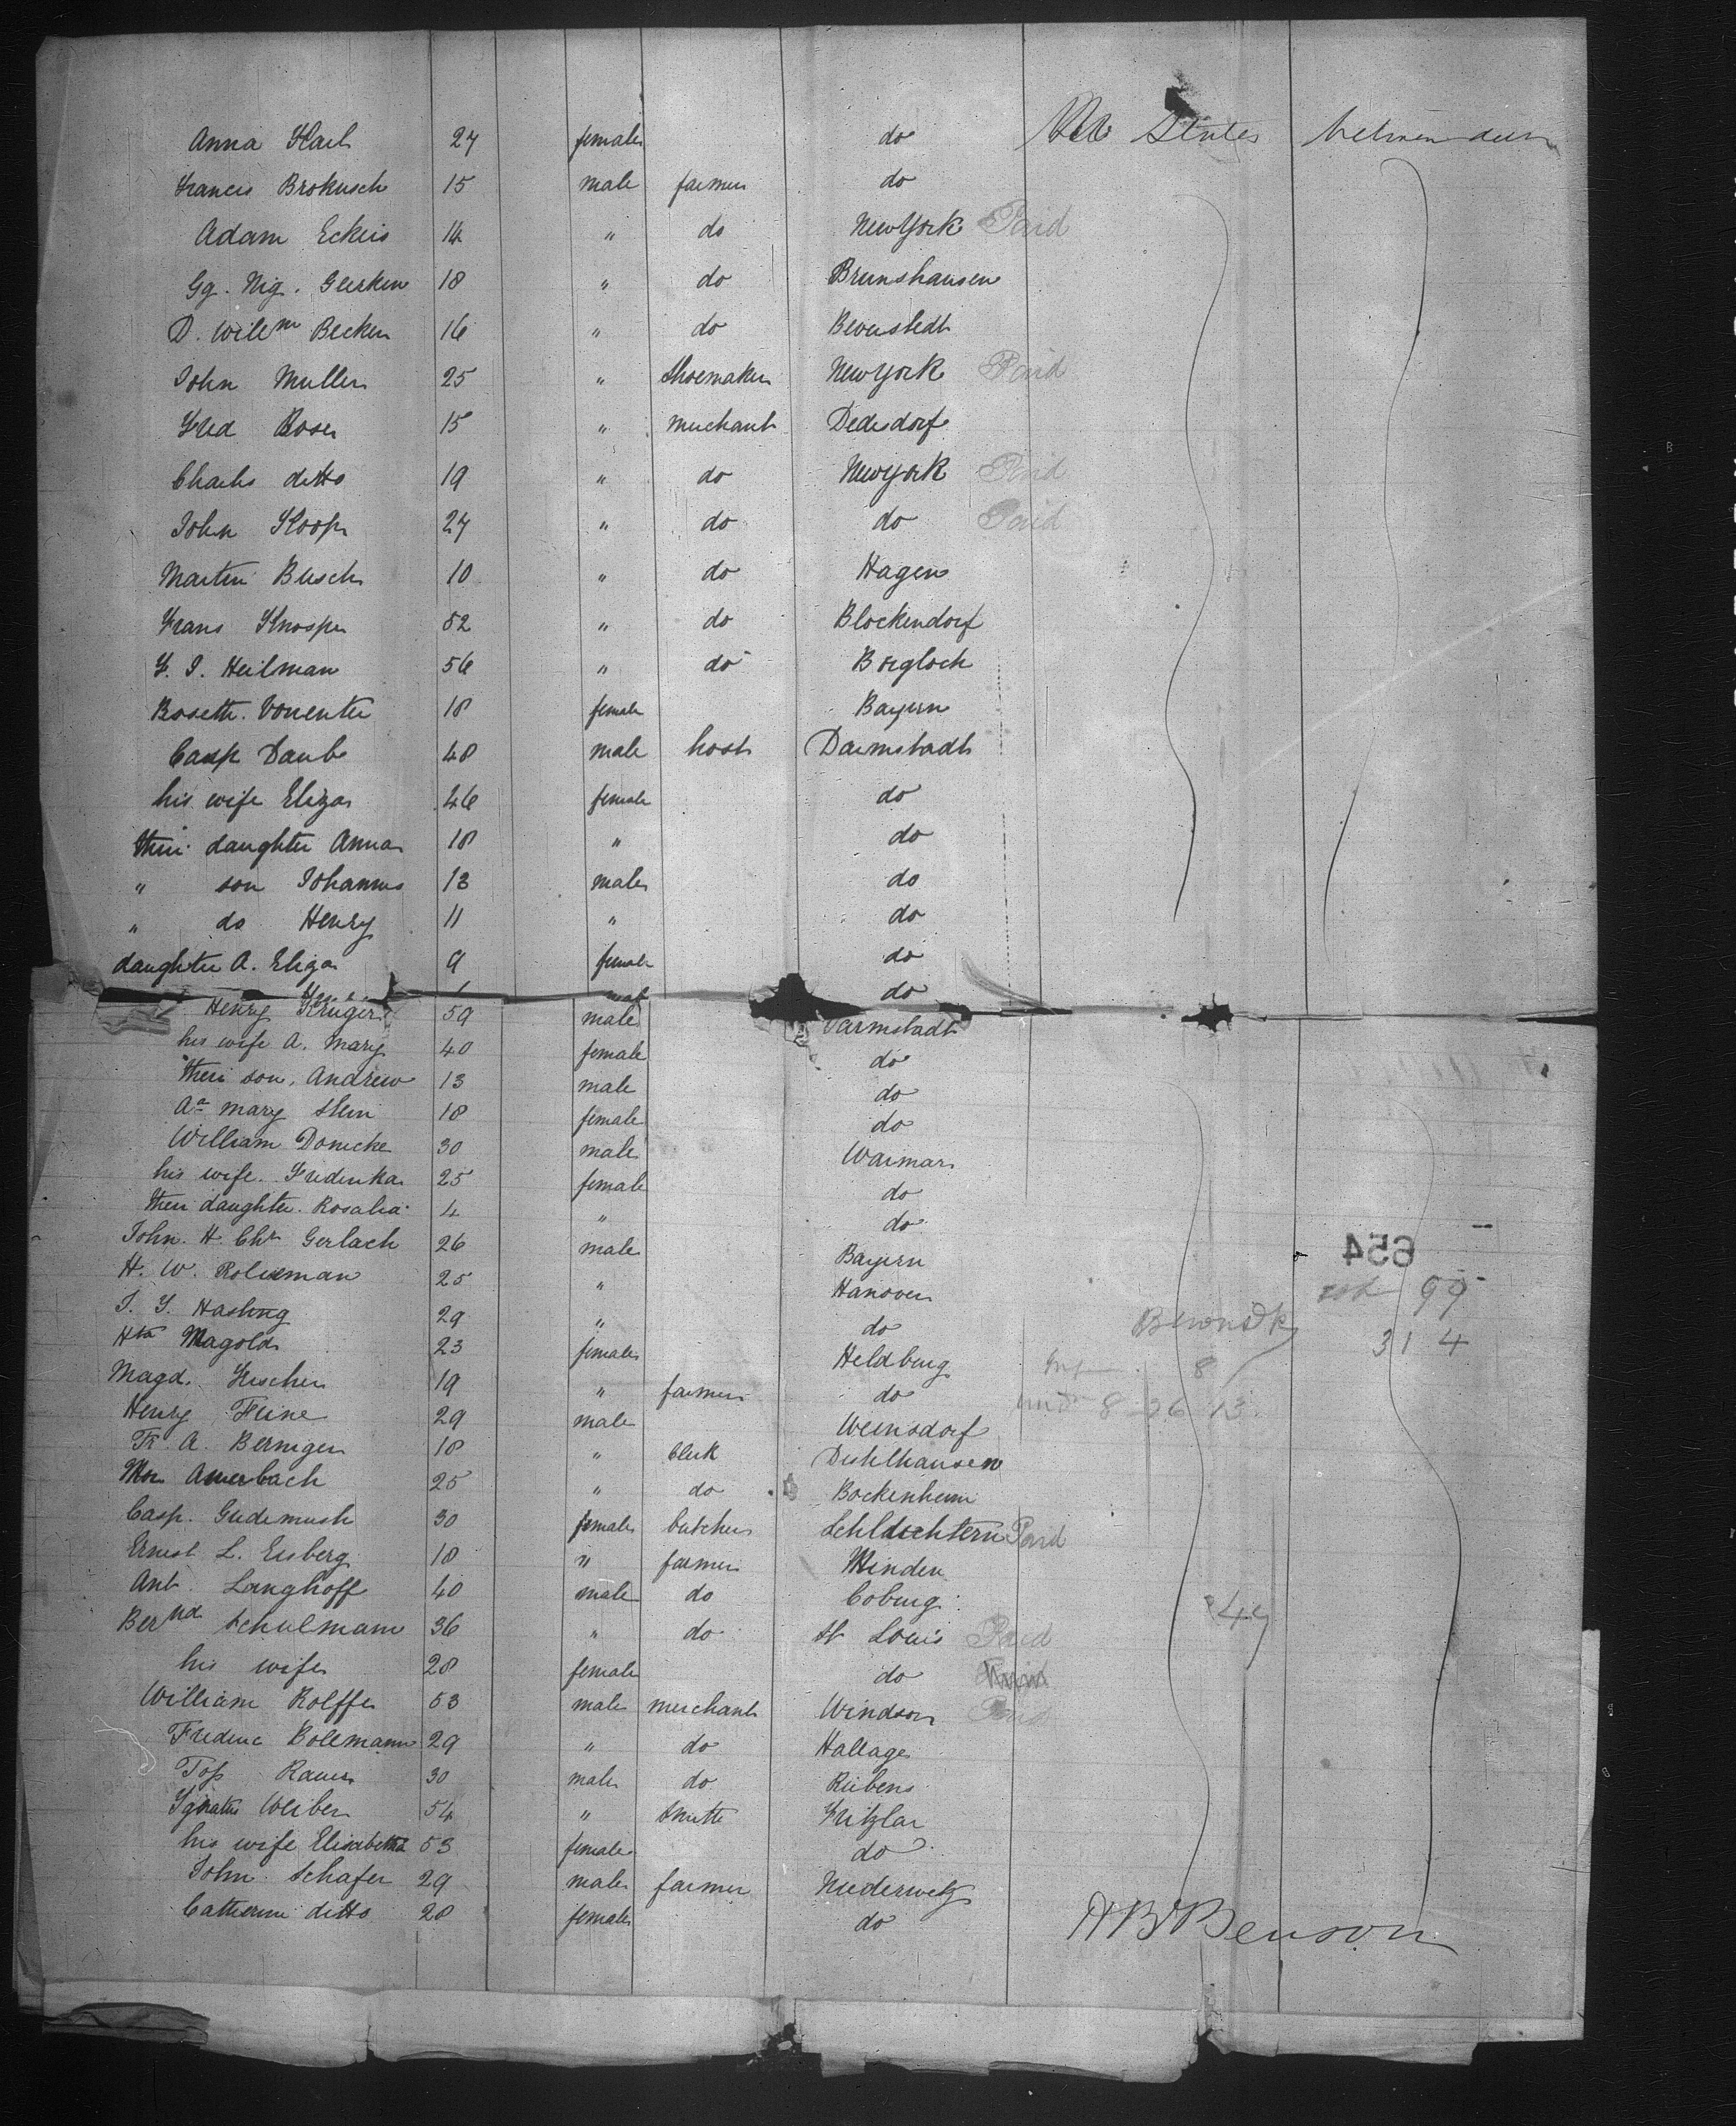 Anna Karl 27 female do U States between deck
Francis Brokusch 15 male farmer do
Adam Eckers 14 " do New York Paid
Gg. Nig. Gerken 18 " do Brunshausen
D. Will^m Becker 16 " do Beverstedt
John Muller 25 " shoemaker New York Paid
Fred Boser 15 " merchant Dedesdorf
Charles ditto 19 " do New York Paid
John Koop 27 " do do Paid
Martin Busch 10 " do Hagen
Frans Knosper 52 " do Blockendorf
F. J. Heilman 56 " do Borgloch
Boseth. Vonenter 18 female Bayern
Casp Daub 48 male host Darmstadt
his wife Eliza 46 female do
their daughter Anna 18 " do
" son Johannes 13 male do
" do Henry 11 " do
daughter A. Eliza 9 female do
do
Henry Kruger 59 male Darmstadt
his wife A. Mary 40 female do
their son Andrew 13 male do
A^a Mary Stein 18 female do
William Donicke 30 male Waimar
his wife Frederika 25 female do
their daughter Rosalia 4 " do
John H. Chr Gerlach 26 male Bayern
654
H. W. Roleman 25 " Hanover
99
J. F. Hasling 29 " do
31 4
Magold 23 female Heldburg
8
Magd. Fischer 19 " farmer do
8 26 13
Henry Feine 29 male Weensdorf
Fr. A. Berniger 18 " clerk Distelhausen
Mor Auerbach 25 " do Bockenheim
Casp. Gudemush 30 female butcher Schlüchtern Paid
Ernest L. Eisberg 18 " farmer Minden
Ant. Langhoff 40 male do Coburg
49
Ber^nd Schulmann 36 " do St Louis Paid
his wife 28 female do
William Rolffe 53 male merchant Windsor Paid
Frederic Bollmann 29 " do Hallage
Jos Rauer 30 male do Rubens
Ignatus Weiber 54 " smith Fritzlar
his wife Elisabetha 53 female do
John Schafer 29 male farmer Niederwetz
Catherine ditto 28 female do
H B Benson